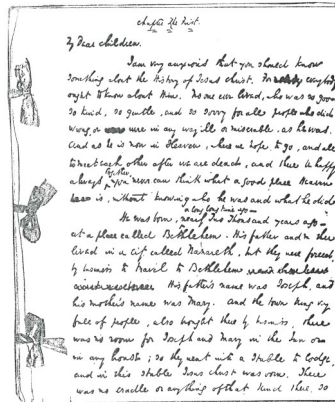 Chapter the First.
My Dear children.
I am very anxious that you should know
something about the History of Jesus Christ. For everybody
ought to know about Him. No one ever lived, who was so good,
so kind, so gentle, and so sorry for all people who did
wrong, or were in any way ill or miserable, as he was.
And as he is now in Heaven, where we hope to go, and all
to meet each other after we are dead, and there be happy
always together, you never can think what a good place Heaven
is, without knowing who he was and what he did
He was born, a long long time ago — nearly Two Thousand years ago —
at a place called Bethlehem. His father and
lived in a city called Nazareth, but they were forced,
by business to travel to Bethlehem
His father's name was Joseph, and
his mother's name was Mary. And the town being very
full of people, also brought there by business, there
was no room for Joseph and Mary in the Inn or
in any house; so they went into a stable to lodge,
and in this stable Jesus Christ was born. There
was no cradle or anything of that kind there, so